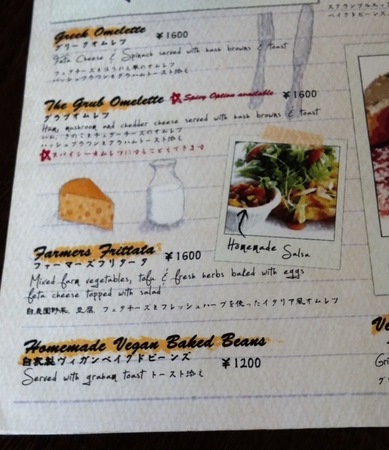 Greek Omelette
グリークオムレツ ¥1600
Feta Cheese & Spinach served with hash browns & toast
フェタチーズとほうれん草のオムレツ
ハッシュブラウン&グラハムトースト添え
The Grub Omelette ☆Spicy Option available ¥1600
グラブオムレツ
Ham, mushroom and chedder cheese served with hash browns & toast
ハム、きのことチェダーチーズのオムレツ
ハッシュブラウン&グラハムトースト添え
☆スパイシーオムレツにすることもできます
Homemade
Salsa
Farmers Frittata ¥1600
ファーマーズフリタータ
Mixed farm vegetables, tofu & fresh herbs baked with eggs
feta cheese topped with salad
自農園野菜、豆腐、フェタチーズとフレッシュハーブを使ったイタリア風オムレツ
Homemade Vegan Baked Beans
自家製ヴィガンベイクドビーンズ ¥1200
Served with graham toast トースト添え